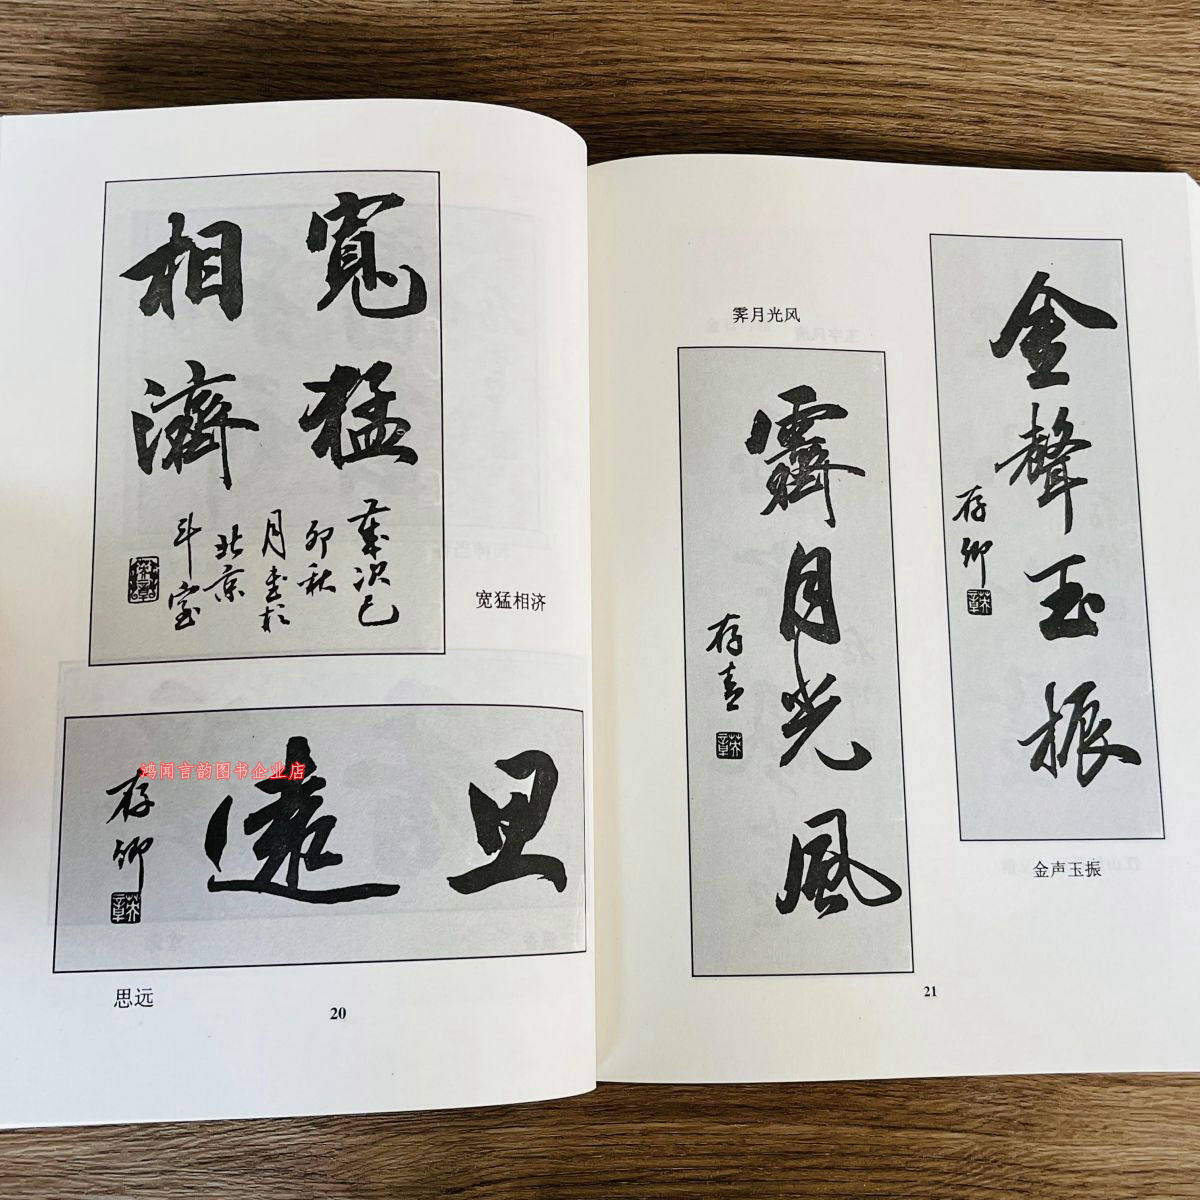 寬猛
相濟
歲次己
卯秋
月書於
北京
斗室
宽猛相济
思遠
存卿
鸿闻言韵图书企业店
思远
20
金聲玉振
存卿
金声玉振
霁月光风
霽月光風
存書
21